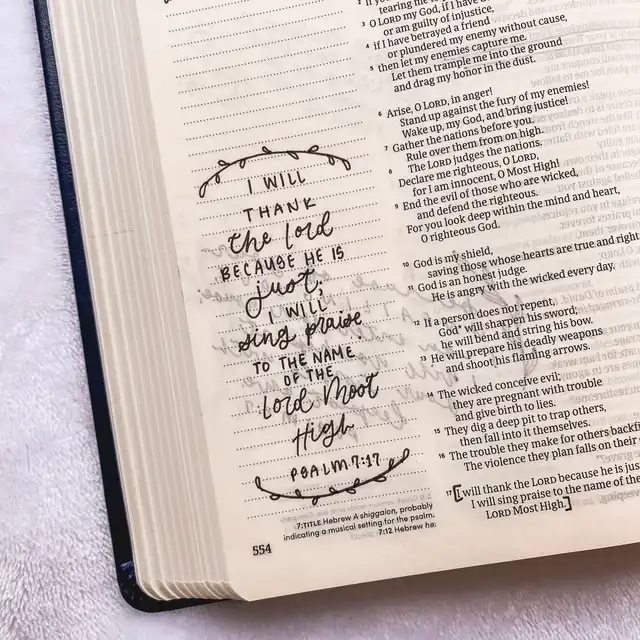 I WILL
THANK
the lord
BECAUSE HE IS
just;
I WILL
sing praise
TO THE NAME
OF THE
lord Most
High
PSALM 7:17
554
tearing me
3 O LORD my God, if I have
or am guilty of injustice,
4 if I have betrayed a friend
or plundered my enemy without cause,
5 then let my enemies capture me.
Let them trample me into the ground
and drag my honor in the dust.
6 Arise, O LORD, in anger!
Stand up against the fury of my enemies!
Wake up, my God, and bring justice!
7 Gather the nations before you.
Rule over them from on high.
8 The LORD judges the nations.
Declare me righteous, O LORD,
for I am innocent, O Most High!
9 End the evil of those who are wicked,
and defend the righteous.
For you look deep within the mind and heart,
O righteous God.
10 God is my shield,
saving those whose hearts are true and right
11 God is an honest judge.
He is angry with the wicked every day.
12 If a person does not repent,
God* will sharpen his sword;
he will bend and string his bow.
13 He will prepare his deadly weapons
and shoot his flaming arrows.
14 The wicked conceive evil;
they are pregnant with trouble
and give birth to lies.
15 They dig a deep pit to trap others,
then fall into it themselves.
16 The trouble they make for others backfi
The violence they plan falls on their
17 [I will thank the LORD because he is jus
I will sing praise to the name of the
LORD Most High.]
7:TITLE Hebrew A shiggaion, probably
indicating a musical setting for the psalm.
7:12 Hebrew he;